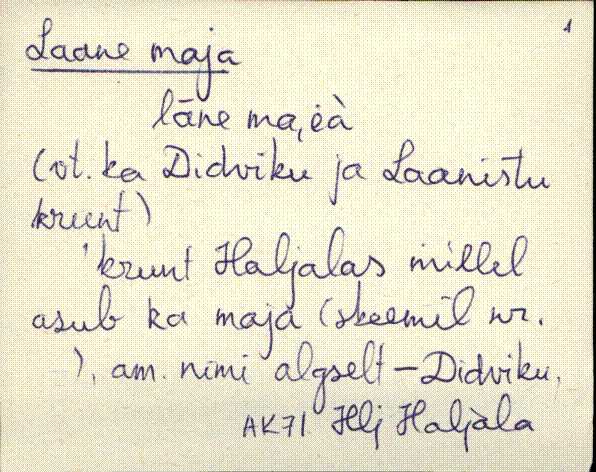 1
Laane maja
lāne ma,èà
(vt. ka Didviku ja Laanistu
krunt)
'krunt Haljalas millel
asub ka maja (skeemil nr.
), am. nimi algselt – Didviku.
AK71 Hlj Haljala